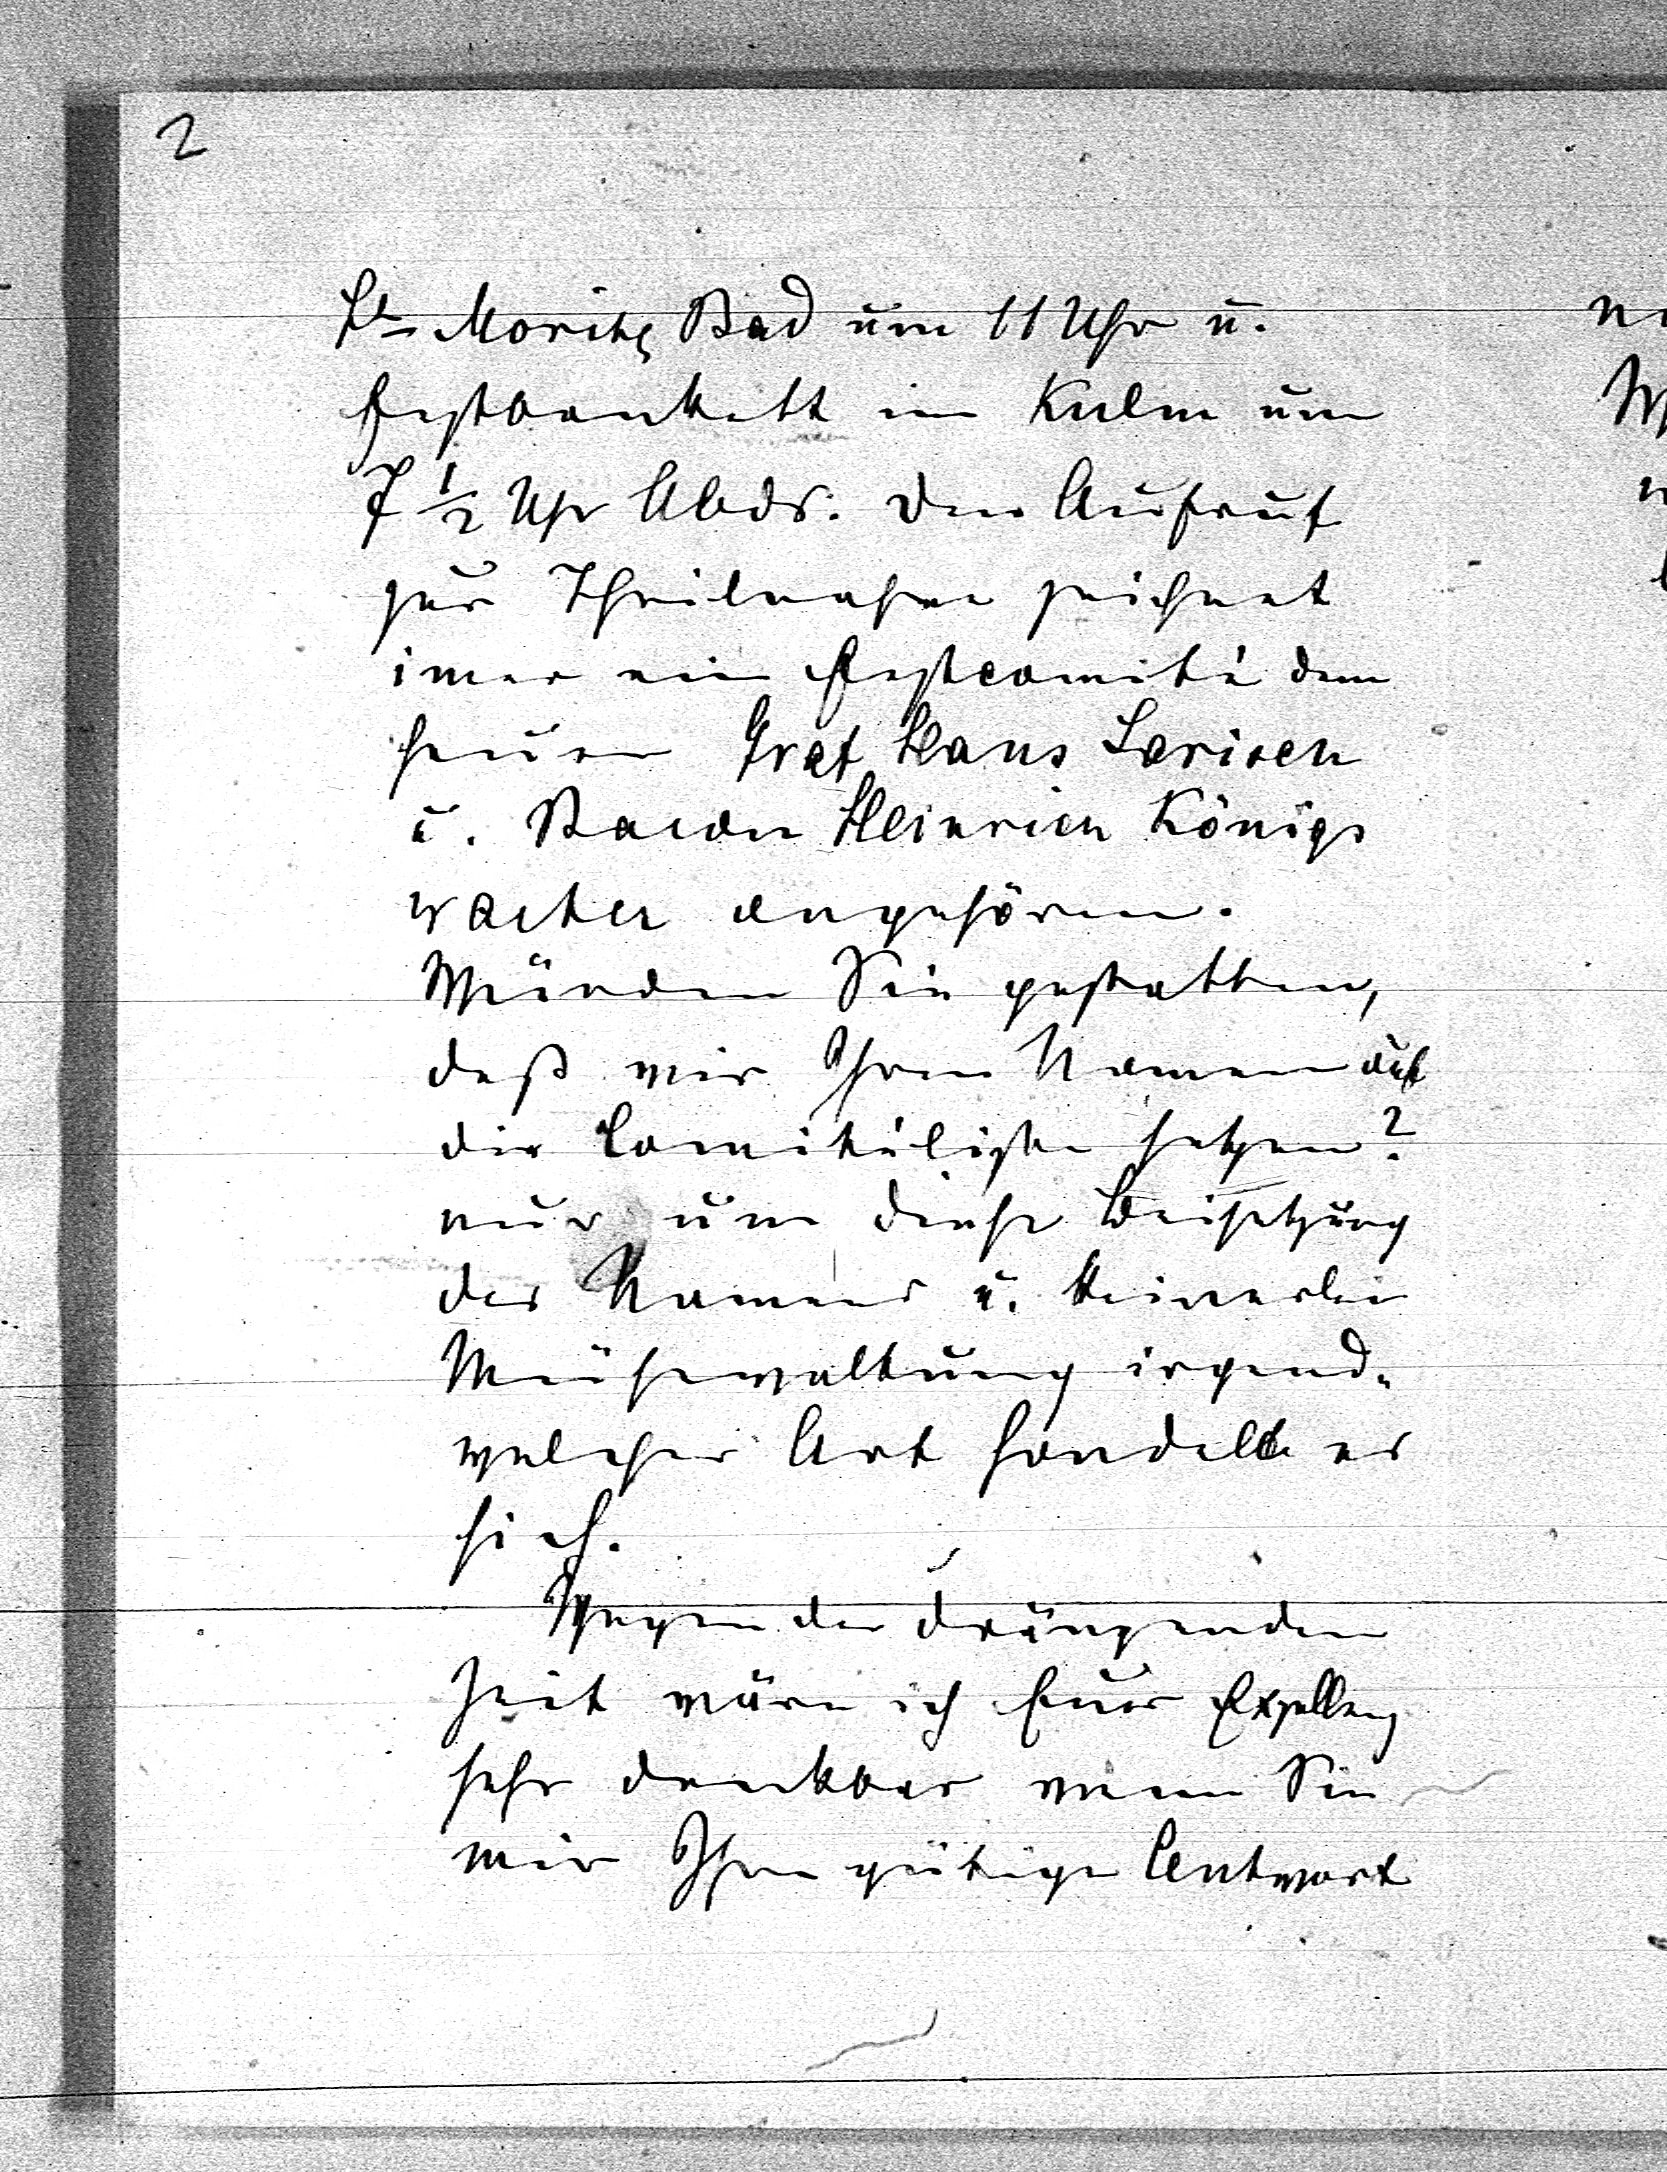 2
St. Moritz Bad um 11 Uhr u.
Festbankett im Kulm um
7 1/2 Uhr Abds. Den Aufruf
zur Theilnahme zeichnet
imer ein Festcomité dem
heuer Graf Hans Larisch
u. Baron Heinrich Königs
warter angehören.
Würden Sie gestatten,
daß wir Ihren Namen auf
die Comitéliste setzen?
nur um diese Beisetzung
des Namens u. keinerlei
Mühewaltung irgend-
welcher Art handelt es
sich.
Wegen der drängenden
Zeit wäre ich Euer Exzellenz
sehr dankbar wenn Sie
mir Ihre gütige Antwort